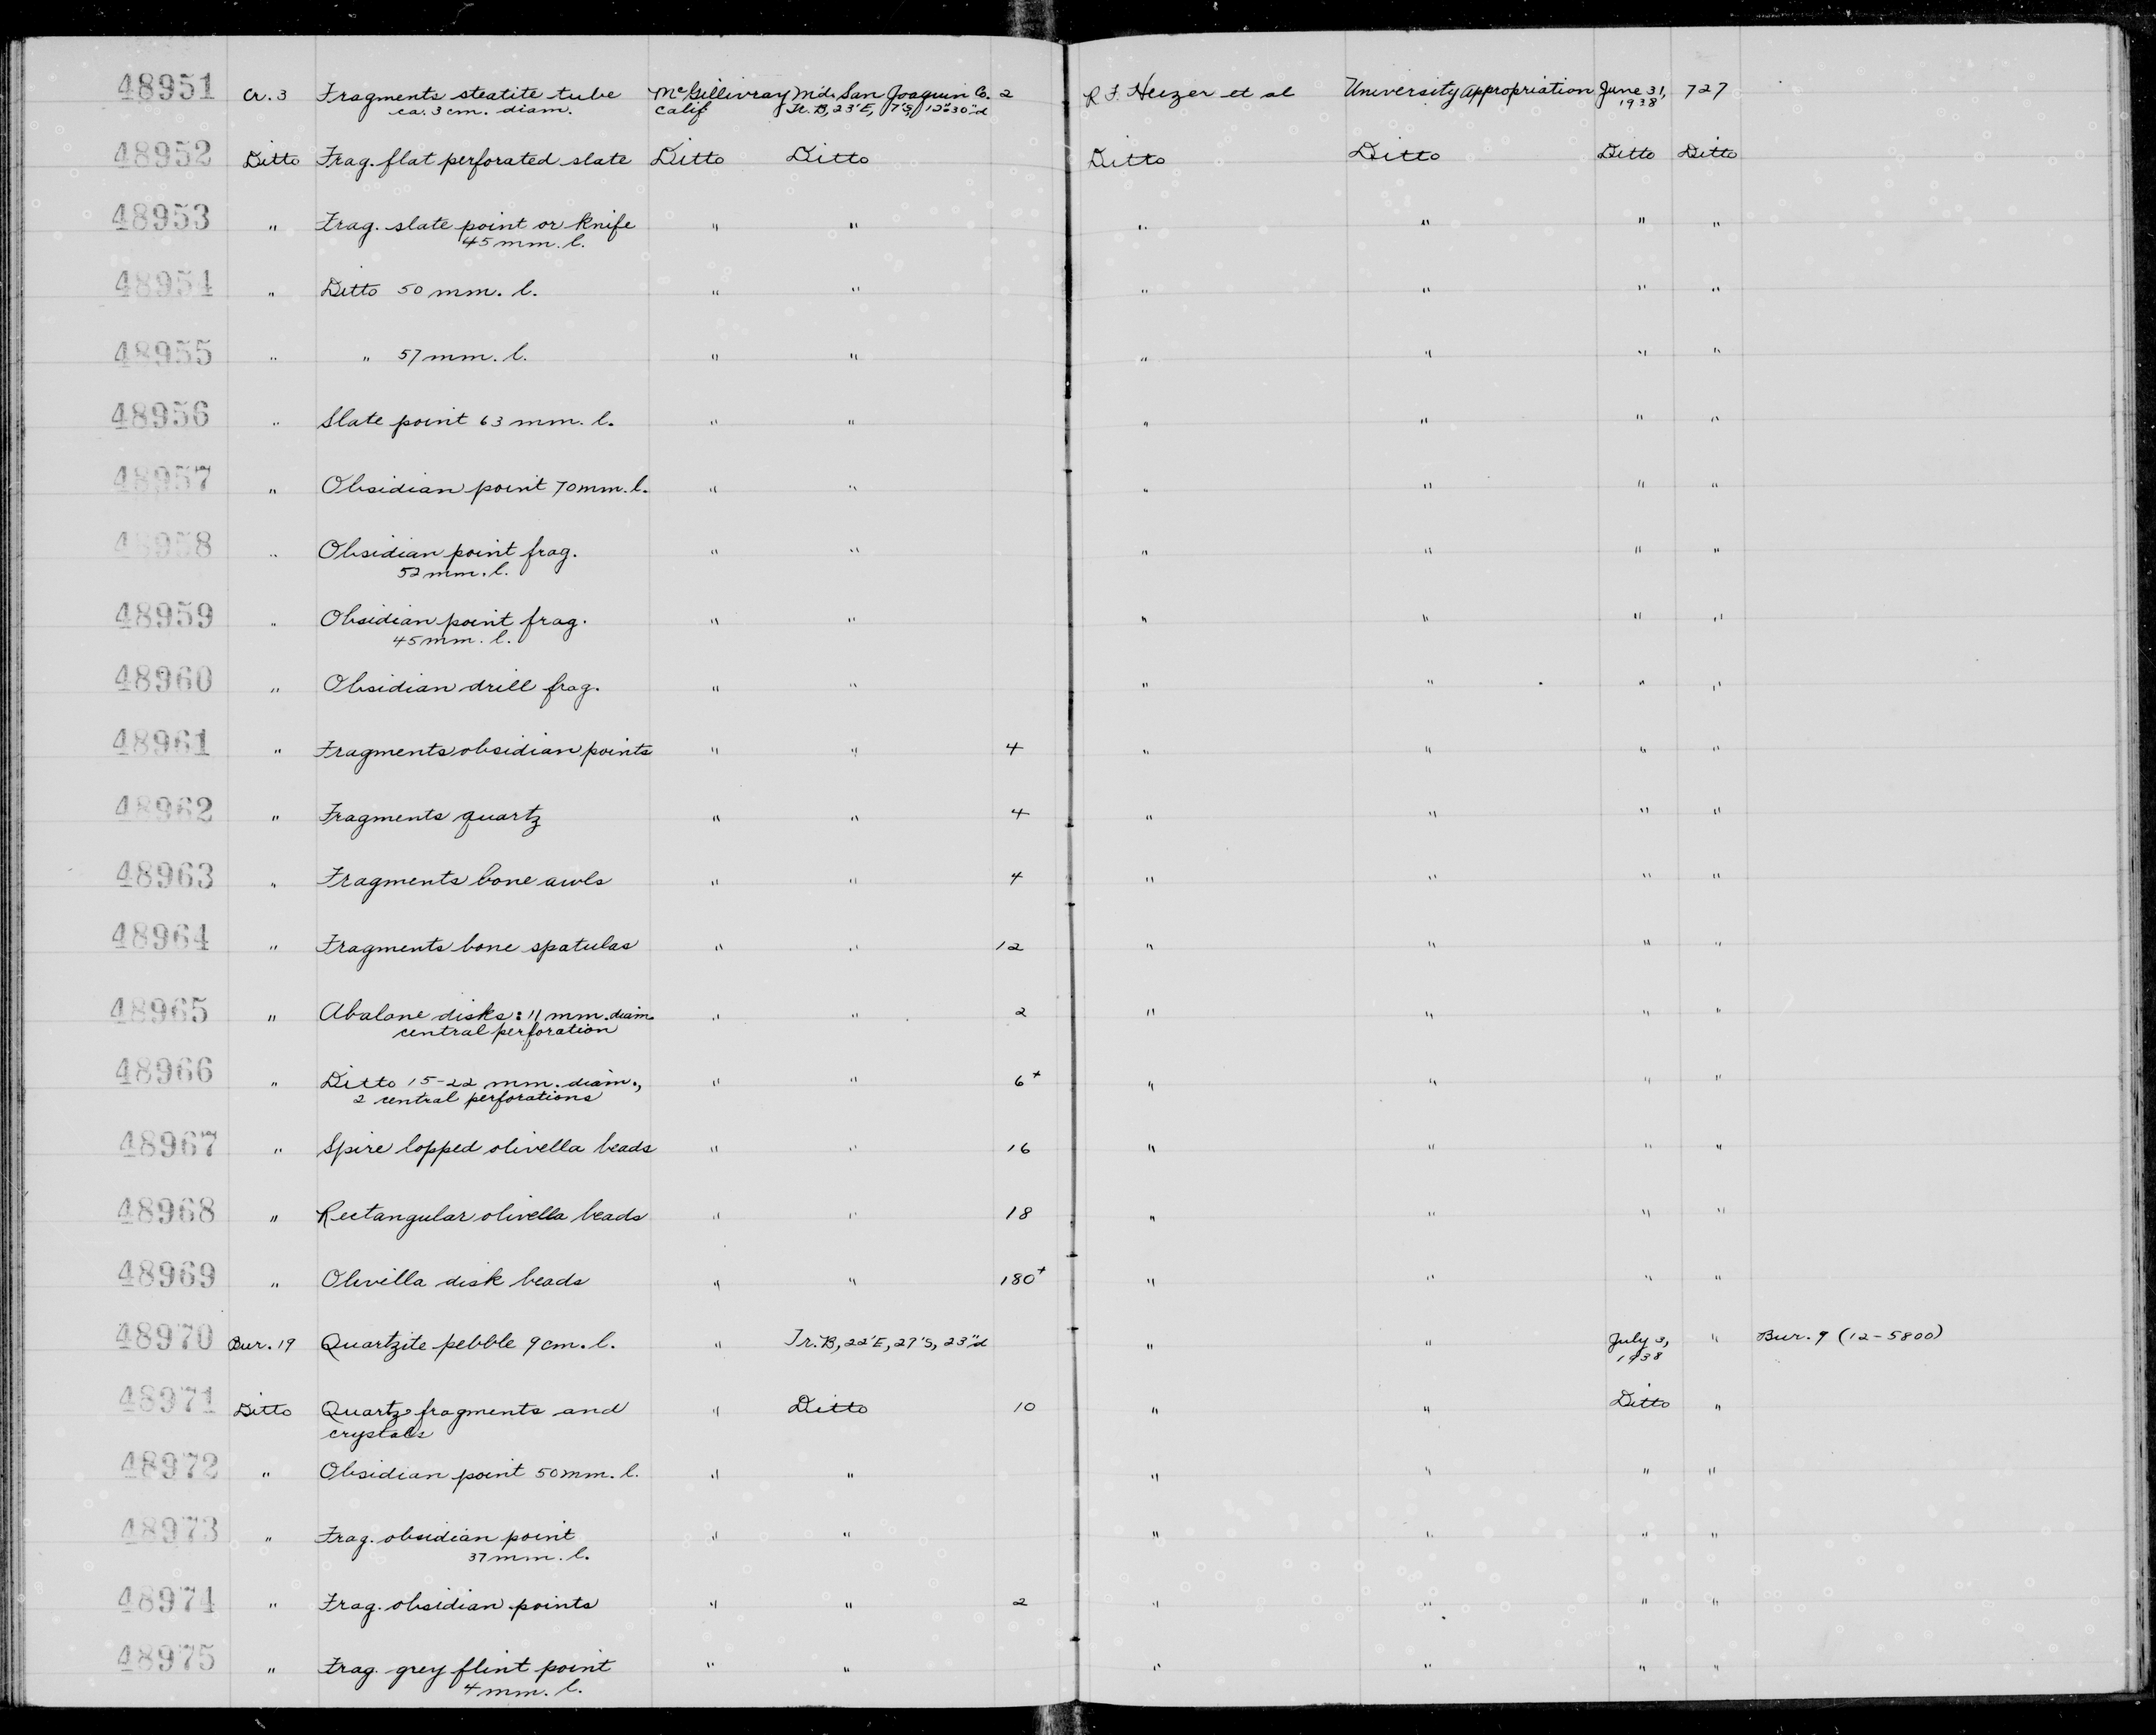 48951 Cr. 3 Fragments steatite tube McGillivray Md. San Joaquin Co. 2 R F. Heizer et al University Appropriation June 31, 727
ca. 3 cm. diam. Calif Tr. B, 23'E, 7'S, 12"-30"d 1938
48952 Ditto Frag. flat perforated slate Ditto Ditto Ditto Ditto Ditto Ditto
48953 " Frag. slate point or knife " " " " " "
45 mm. l.
48954 " Ditto 50 mm. l. " " " " " "
48955 " " 57 mm. l. " " " " " "
48956 " Slate point 63 mm. l. " " " " " "
48957 " Obsidian point 70 mm. l. " " " " " "
48958 " Obsidian point frag. " " " " " "
52 mm. l.
48959 " Obsidian point frag. " " " " " "
45 mm. l.
48960 " Obsidian drill frag. " " " " " "
48961 " Fragments obsidian points " " 4 " " " "
48962 " Fragments quartz " " 4 " " " "
48963 " Fragments bone awls " " 4 " " " "
48964 " Fragments bone spatulas " " 12 " " " "
48965 " Abalone disks: 11 mm. diam. " " 2 " " " "
central perforation
48966 " Ditto 15-22 mm. diam., " " 6+ " " " "
2 central perforations
48967 " Spire lopped olivella beads " " 16 " " " "
48968 " Rectangular olivella beads " " 18 " " " "
48969 " Olivilla disk beads " " 180+ " " " "
48970 Bur. 19 Quartzite pebble 9 cm. l. " Tr. B, 22'E, 27'S, 23"d " " July 3, " Bur. 9 (12-5800)
1938
48971 Ditto Quartz fragments and " Ditto 10 " " Ditto "
crystals
48972 " Obsidian point 50 mm. l. " " " " " "
48973 " Frag. obsidian point " " " " " "
37 mm. l.
48974 " Frag. obsidian points " " 2 " " " "
48975 " Frag. grey flint point " " " " " "
4 mm. l.